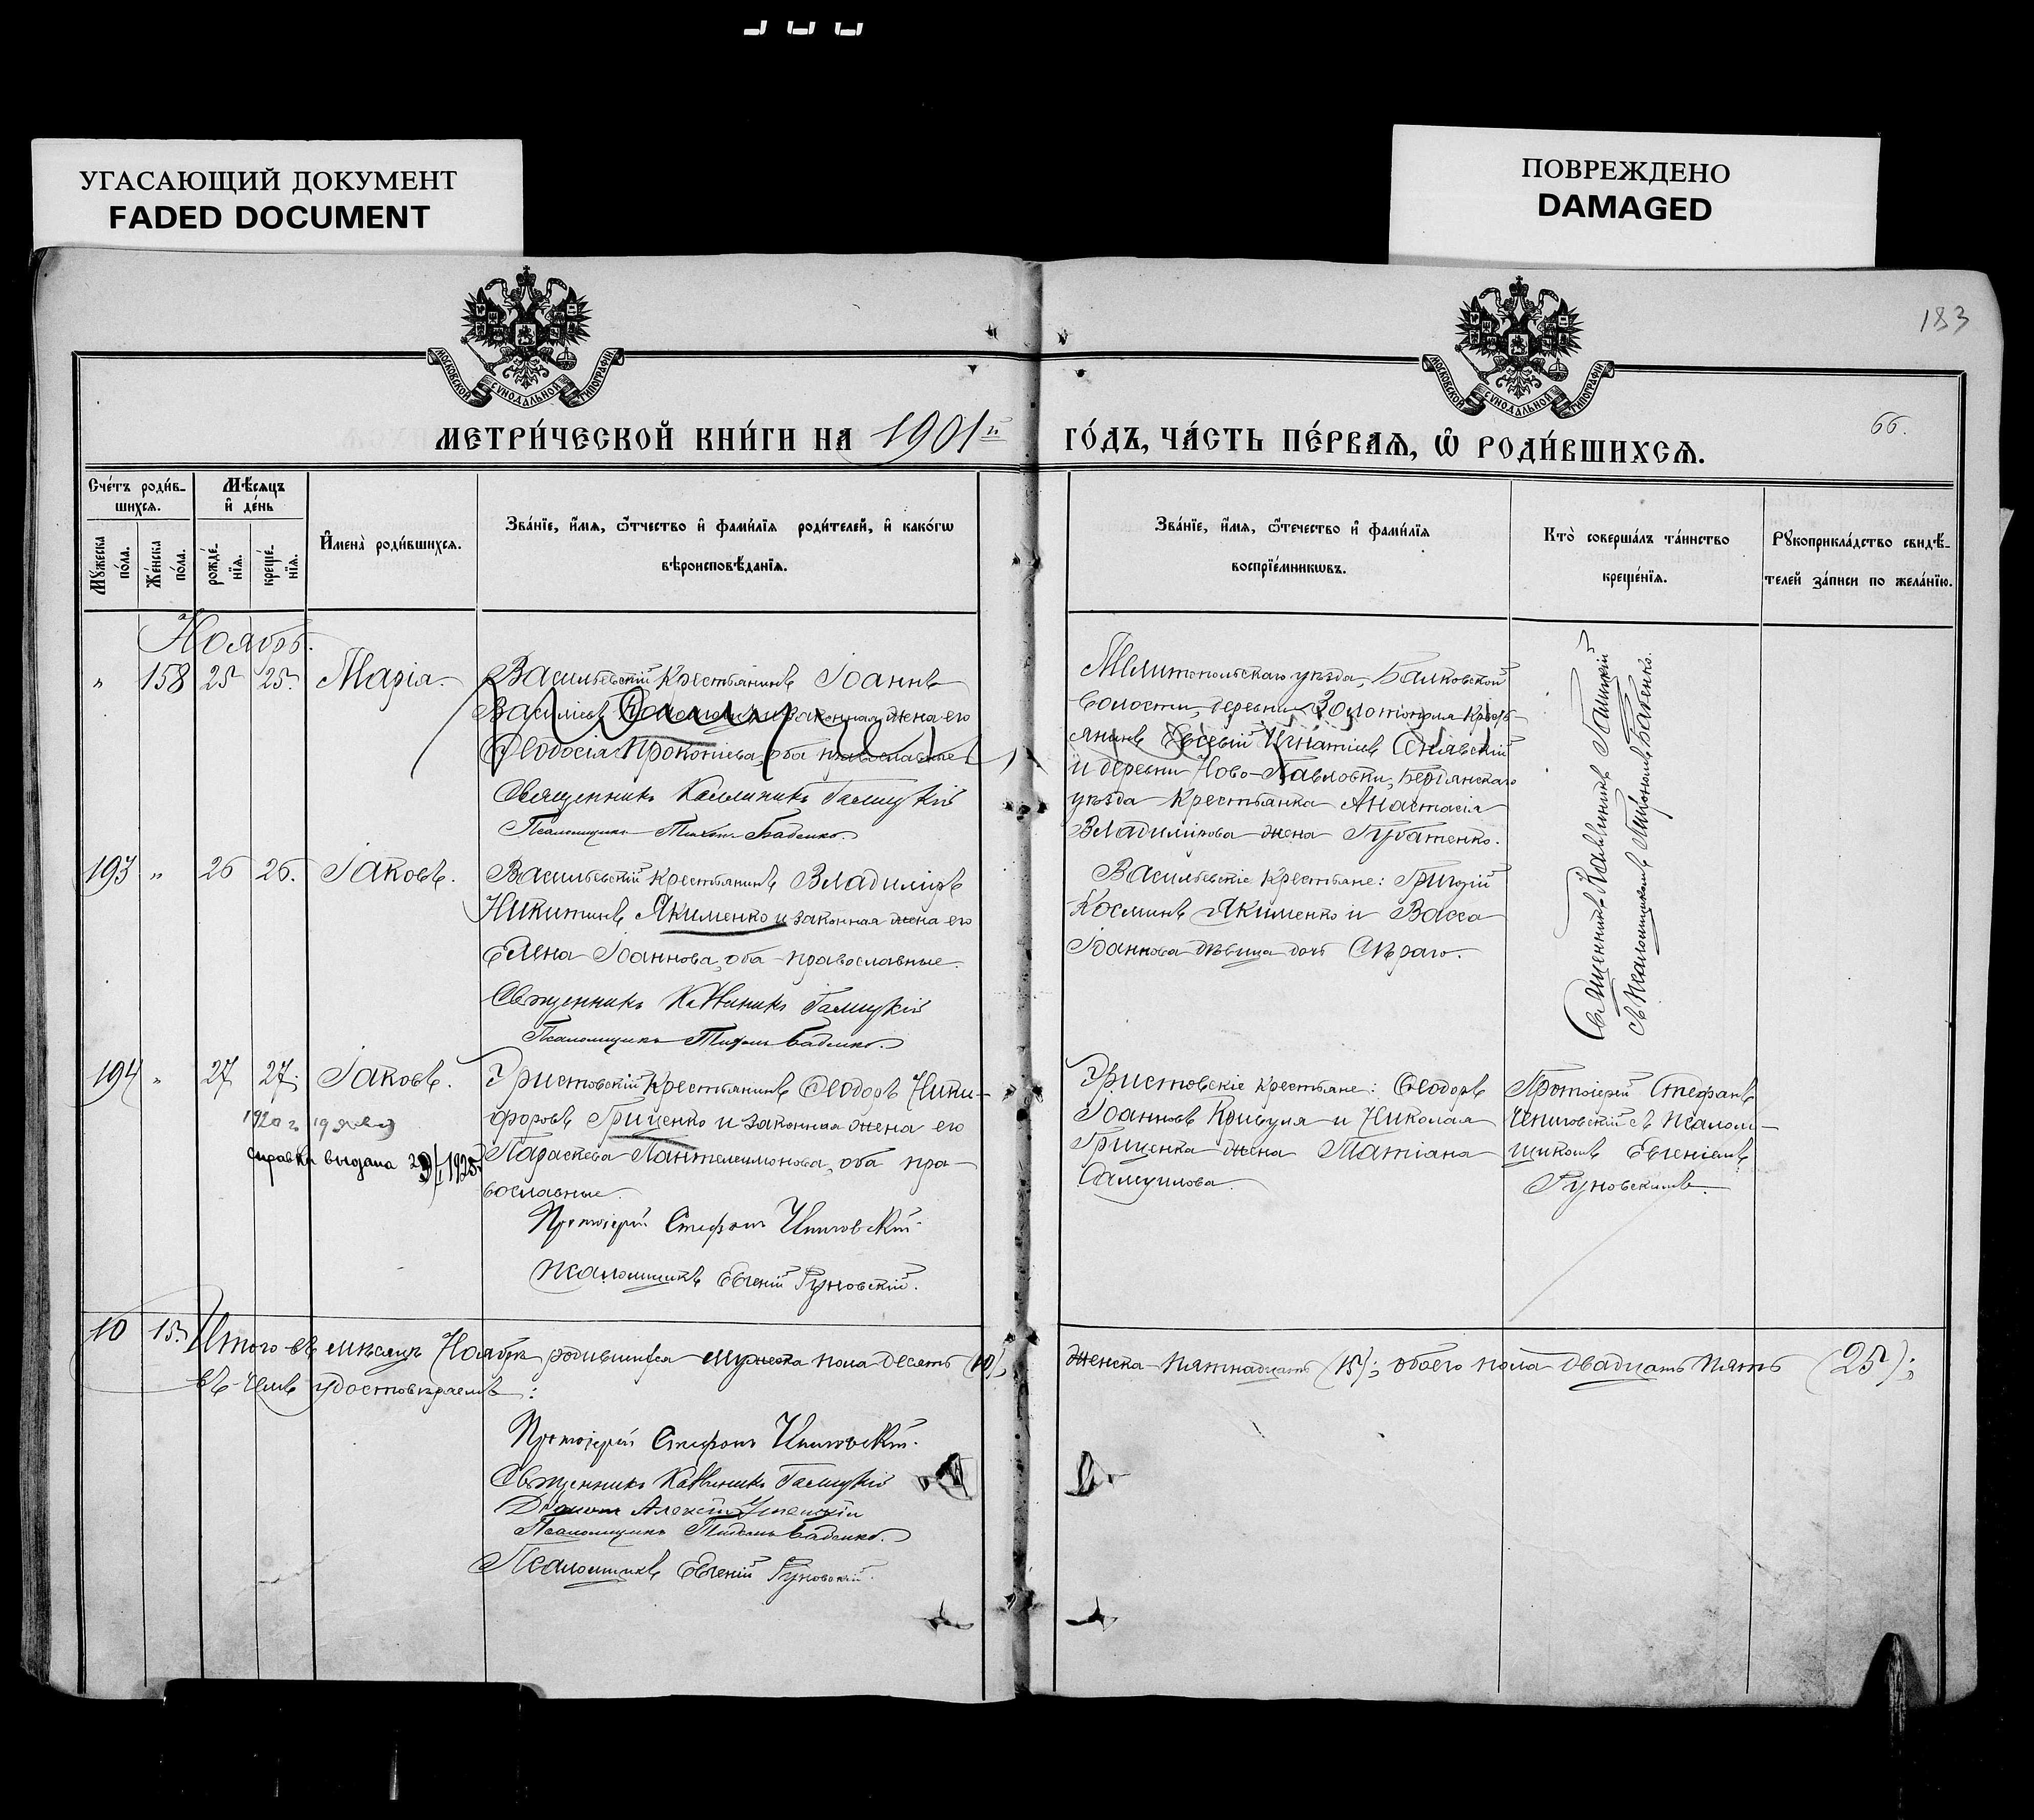 УГАСАЮЩИЙ ДОКУМЕНТ
FADED DOCUMENT
ПОВРЕЖДЕНО
DAMAGED
183
МОСКОВСКОЙ СѴНОДАЛЬНОЙ ТИПОГРАФІИ
МОСКОВСКОЙ СѴНОДАЛЬНОЙ ТИПОГРАФІИ
66.
МЕТРИ́ЧЕСКОЙ КНИ́ГИ НА 1901й ГО́ДЪ, ЧА́СТЬ ПЕ́РВАЯ, Ѿ РОДИ́ВШИХСЯ.
Сче́тъ роди́в-
шихся.
Мѣ́сяцъ
и҆ де́нь
Мꙋ́жеска по́ла.
Же́нска по́ла.
рожде́-
нїя.
креще́-
нїя.
И҆мена̀ роди́вшихся.
Зва́нїе, и҆́мя, ѻ҆́тчество и҆ фами́лїя роди́телей, и҆ како́гѡ
вѣроисповѣ́данїя.
Зва́нїе, и҆́мя, ѻ҆́течество и҆ фами́лїя
воспрїе́мникѡвъ.
Кто̀ соверша́лъ та́инство
креще́нїя.
Рꙋкоприкла́дство свидѣ́-
телей за́писи по жела́нїю.
Ноябрь.
" 158 25 25. Марія.
Васильевскій крестьянинъ Іоаннъ
Васильевъ и законная жена его
Ѳеодосія Прокопіева, оба православные
Священникъ Каллиникъ Галицкій
Псаломщикъ Тихонъ Бабенко.
Мелитопольскаго уѣзда, Балковской
волости, деревни крестъ-
янинъ Евсевій Игнатіевъ
и деревни Ново-Павловки, Бердянскаго
уѣзда крестьянка Анастасія
Владимірова жена Губатенко.
Священникъ Каллиникъ Галицкій
съ псаломщикомъ Бабенко.
193 " 26 26. Іаковъ.
Васильевскій крестьянинъ Владиміръ
Никитинъ Якименко и законная жена его
Елена Іоаннова, оба православные.
Священникъ Каллиникъ Галицкій
Псаломщикъ Тихонъ Бабенко.
Васильевскіе крестьяне: Григорій
Косминъ Якименко и Васса
Іоаннова дѣвица дочь Сѣраго.
194 " 27 27. Іаковъ.
справка выдана 1925
Христовскій крестьянинъ Ѳеодоръ Ники-
форовъ Гриценко и законная жена его
Параскева Пантелеимонова, оба пра-
вославные.
Протоіерей Стефанъ
Псаломщикъ Евгеній Руновскій.
Христовскіе крестьяне: Ѳеодоръ
Іоанновъ Кривуля и Николая
Гриценка жена Татіана
Самуилова.
Протоіерей Стефанъ
съ псалом-
щикомъ Евгеніемъ
Руновскимъ.
10 15. Итого въ мѣсяцѣ Ноябрѣ родившихся мужеска пола десять (10), женска пятнадцать (15); обоего пола двадцать пять (25);
въ чемъ удостовѣряемъ:
Протоіерей Стефанъ
Священникъ Каллиникъ Галицкій
Діаконъ Алексій
Псаломщикъ Тихонъ Бабенко.
Псаломщикъ Евгеній Руновскій.